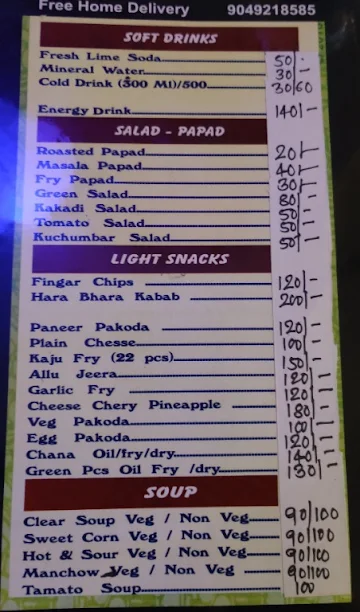 Free Home Delivery 9049218585
SOFT DRINKS
Fresh Lime Soda 50/-
Mineral Water 30/-
Cold Drink (300 Ml)/500 30/60
Energy Drink 140/-
SALAD - PAPAD
Roasted Papad 20/-
Masala Papad 40/-
Fry Papad 30/-
Green Salad 80/-
Kakadi Salad 50/-
Tomato Salad 50/-
Kuchumbar Salad 50/-
LIGHT SNACKS
Fingar Chips 120/-
Hara Bhara Kabab 200/-
Paneer Pakoda 120/-
Plain Chesse 100/-
Kaju Fry (22 pcs) 150/-
Allu Jeera 120/-
Garlic Fry 120/-
Cheese Chery Pineapple 180/-
Veg Pakoda 100/-
Egg Pakoda 120/-
Chana Oil/fry/dry 140/-
Green Pcs Oil Fry /dry 130/-
SOUP
Clear Soup Veg / Non Veg 90/100
Sweet Corn Veg / Non Veg 90/100
Hot & Sour Veg / Non Veg 90/100
Manchow Veg / Non Veg 90/100
Tamato Soup 100